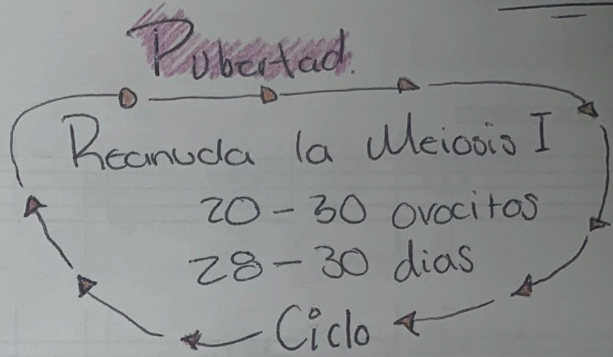 Pubertad.
Reanuda la Meiosis I
20-30 ovocitos
28-30 dias
Ciclo